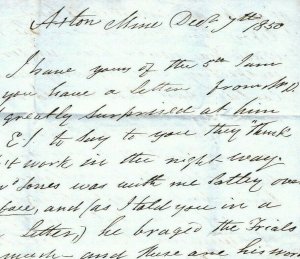 Aston Mine Decr. 7th 1850
I have yours of the 5th I am
you have a Letter from
greatly surprised at him
E I to say to you they "think
it work in the right way.
Jones was with me latley over
face, and (as I told you in a
Letter,) he braged the Trials
much and these are his wor